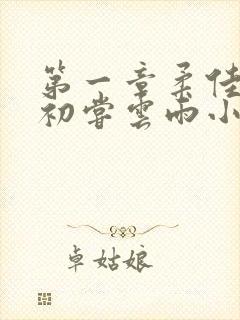 第一章柔佳
初尝雲雨小
卓姑娘